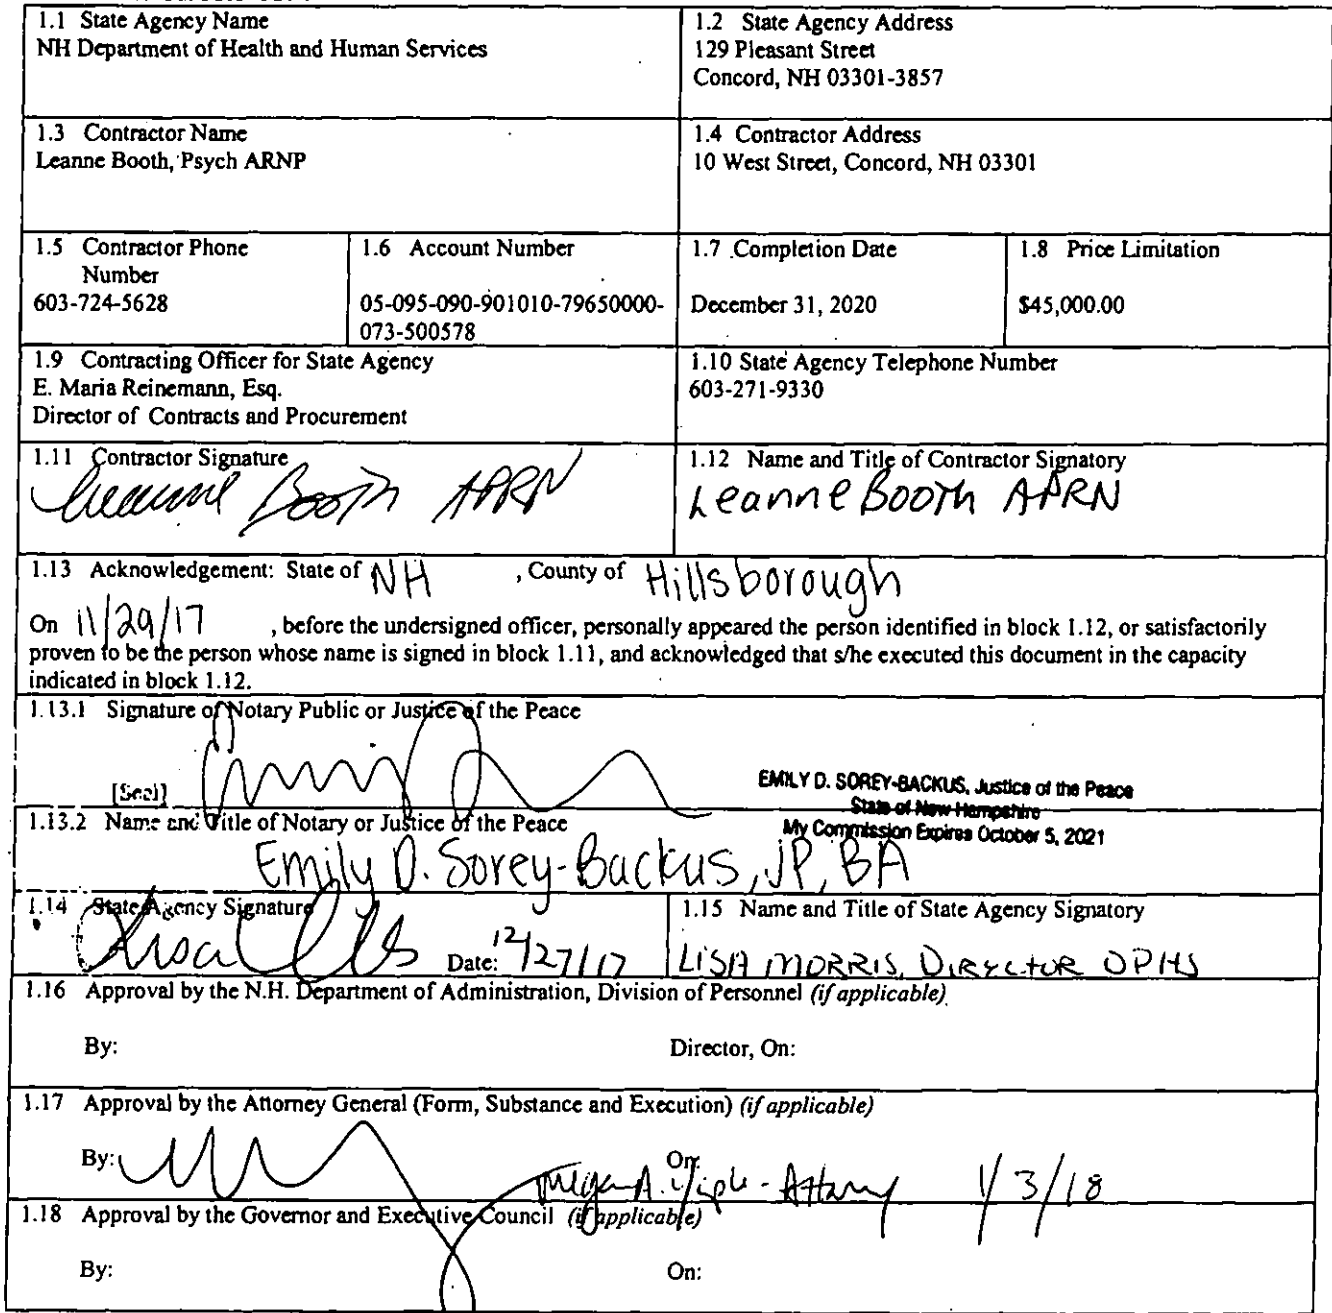 1.1 State Agency Name
NH Department of Health and Human Services
1.2 State Agency Address
129 Pleasant Street
Concord, NH 03301-3857
1.3 Contractor Name
Leanne Booth, Psych ARNP
1.4 Contractor Address
10 West Street, Concord, NH 03301
1.5 Contractor Phone
Number
603-724-5628
1.6 Account Number
05-095-090-901010-79650000-
073-500578
1.7 Completion Date
December 31, 2020
1.8 Price Limitation
$45,000.00
1.9 Contracting Officer for State Agency
E. Maria Reinemann, Esq.
Director of Contracts and Procurement
1.10 State Agency Telephone Number
603-271-9330
1.11 Contractor Signature
Leanne Booth APRN
1.12 Name and Title of Contractor Signatory
Leanne Booth APRN
1.13 Acknowledgement: State of NH , County of Hillsborough
On 11/29/17 , before the undersigned officer, personally appeared the person identified in block 1.12, or satisfactorily
proven to be the person whose name is signed in block 1.11, and acknowledged that s/he executed this document in the capacity
indicated in block 1.12.
1.13.1 Signature of Notary Public or Justice of the Peace
[Seal]
EMILY D. SOREY-BACKUS, Justice of the Peace
State of New Hampshire
My Commission Expires October 5, 2021
1.13.2 Name and Title of Notary or Justice of the Peace
Emily D. Sorey-Backus, JP, BA
1.14 State Agency Signature
Date: 12/27/17
1.15 Name and Title of State Agency Signatory
LISA MORRIS, DIRECTOR DPHS
1.16 Approval by the N.H. Department of Administration, Division of Personnel (if applicable)
By: Director, On:
1.17 Approval by the Attorney General (Form, Substance and Execution) (if applicable)
By: On: Megan A. - Attorney 1/3/18
1.18 Approval by the Governor and Executive Council (if applicable)
By: On: